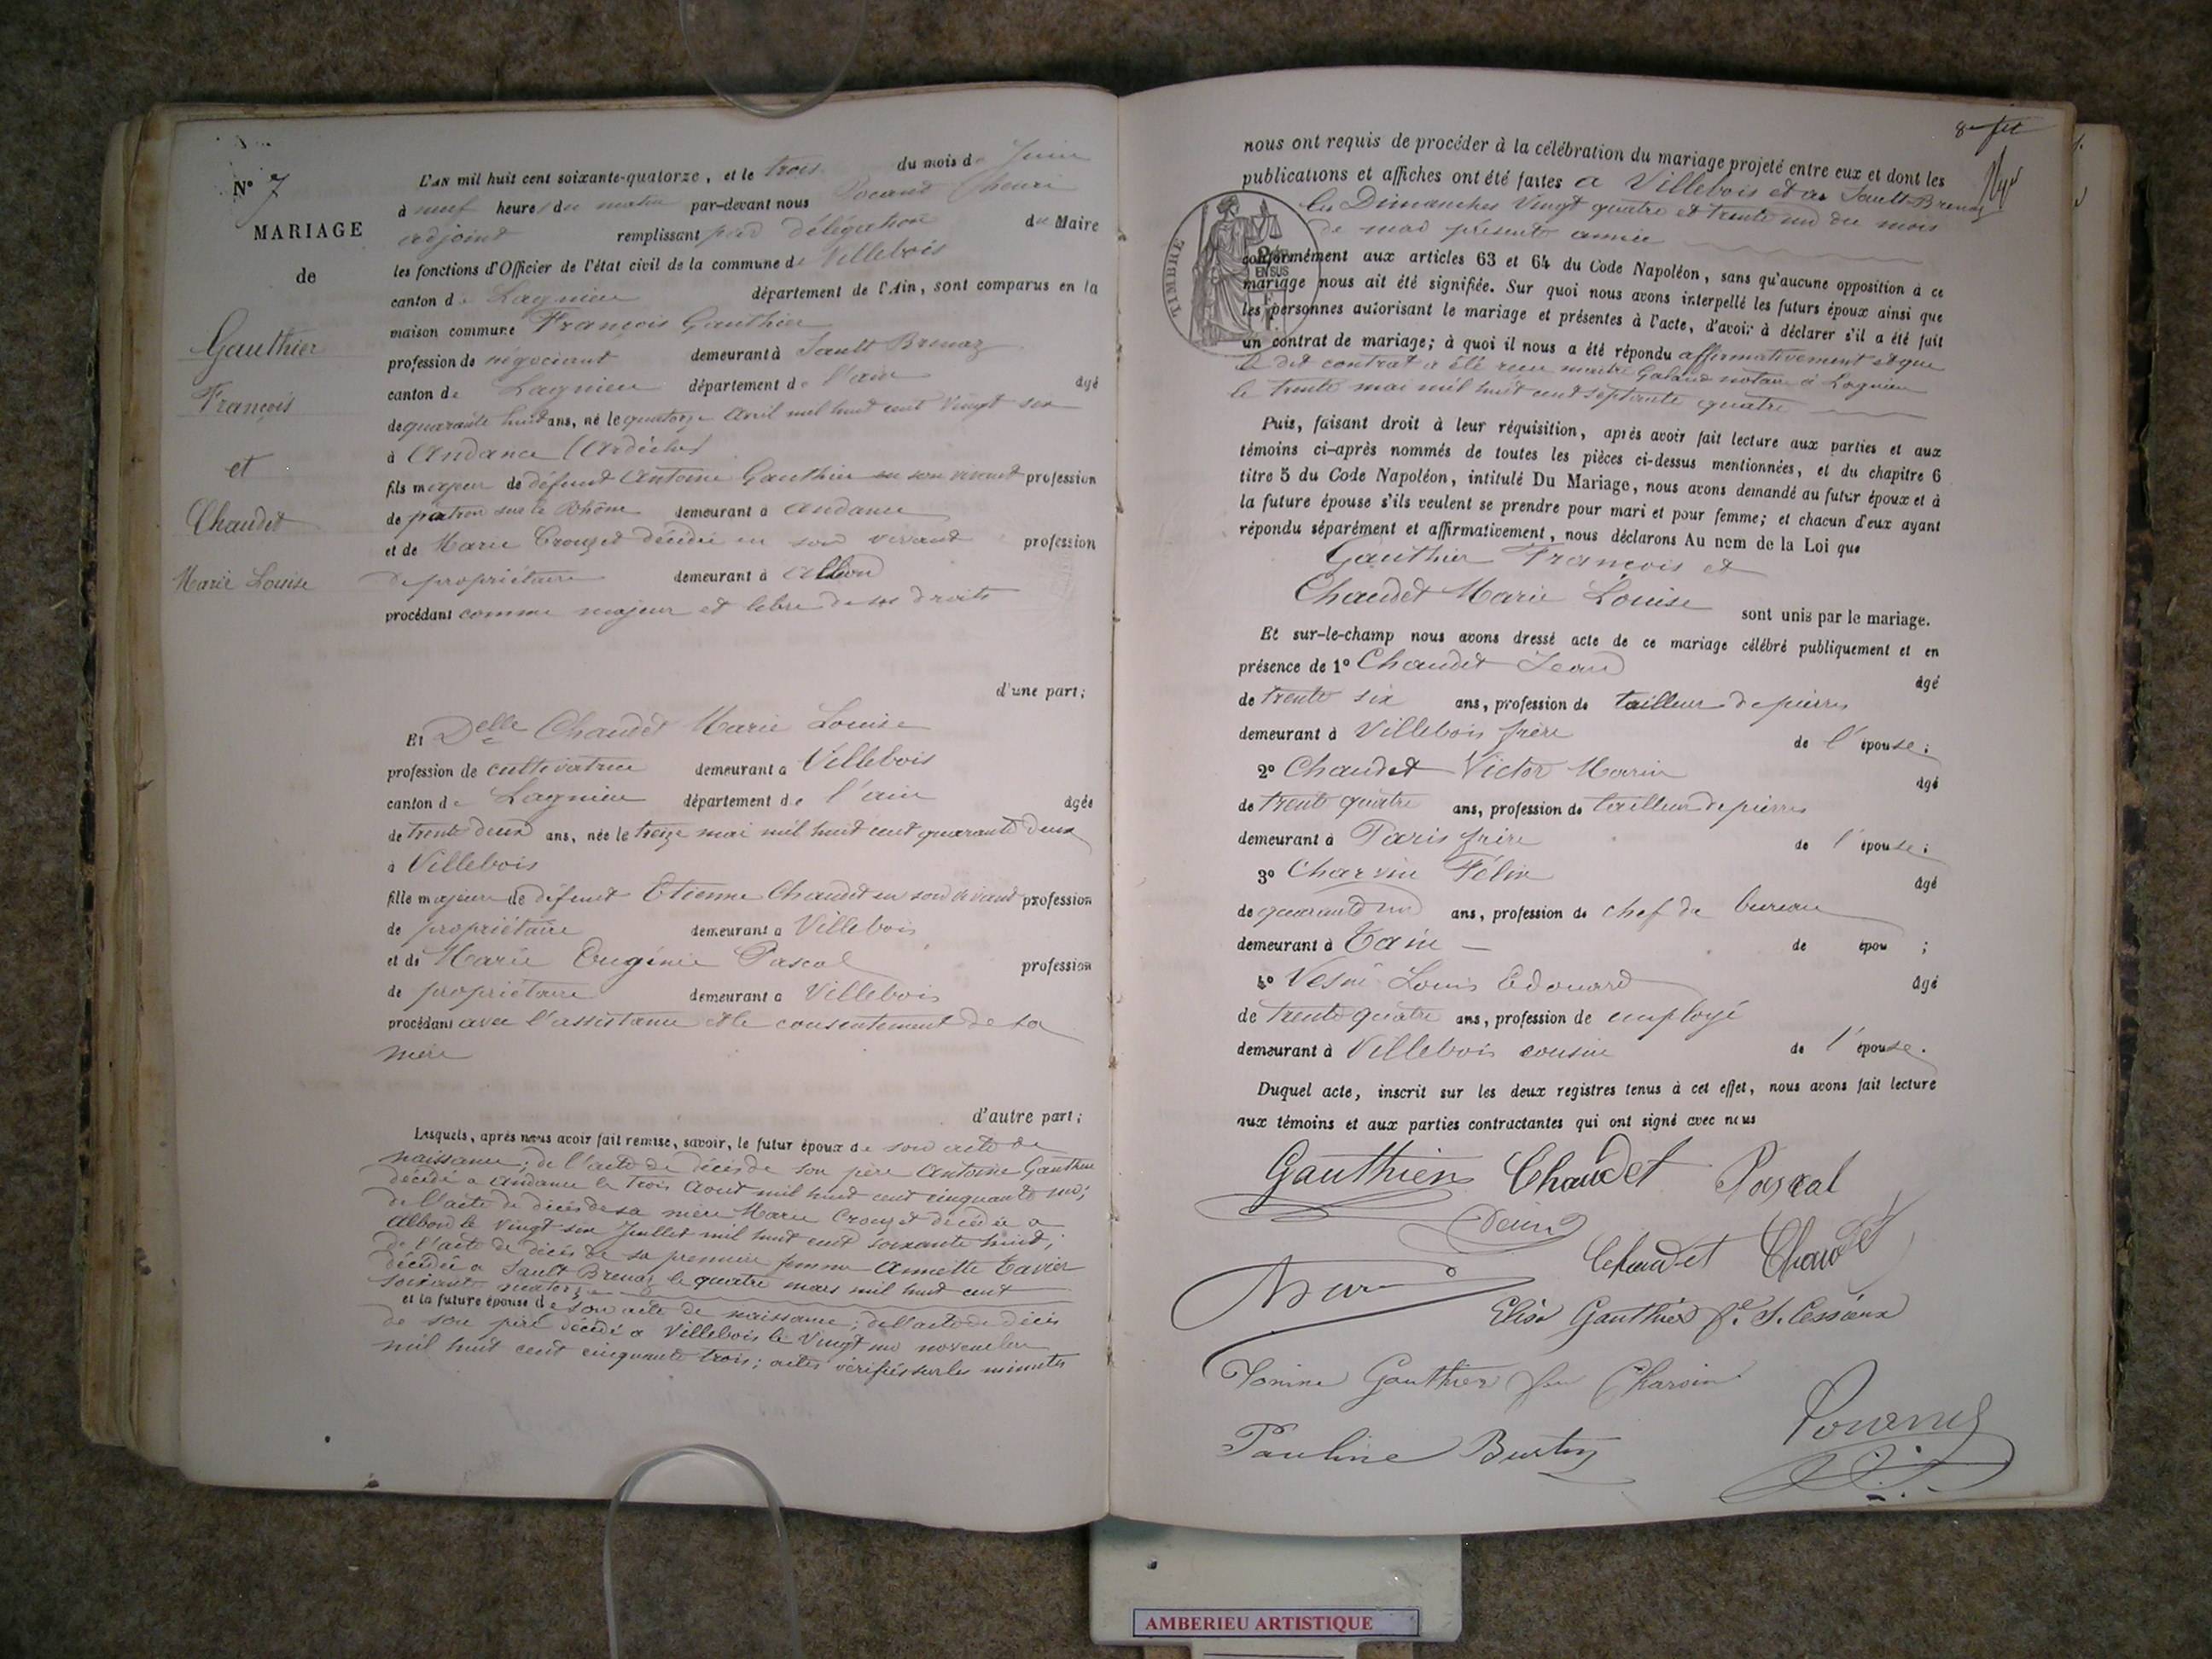 N° 7
MARIAGE
de
Gauthier
François
et
Chaudet
Marie Louise
L'AN mil huit cent soixante-quatorze, et le trois du mois de Juin
à neuf heures du matin par-devant nous Pocand Henri
adjoint remplissant par délégation du Maire
les fonctions d'Officier de l'état civil de la commune de Villebois
canton de Lagnieu département de l'Ain, sont comparus en la
maison commune François Gauthier
profession de négociant demeurant à Sault Brenaz
canton de Lagnieu département de l'ain âgé
de quarante huit ans, né le quatorze avril mil huit cent vingt six
à Andance (Ardèche)
fils majeur de défunt Antoine Gauthier en son vivant profession
de patron sur le Rhône demeurant à Andance
et de Marie Crouzet décédée en son vivant profession
de propriétaire demeurant à Albon
procédant comme majeur et libre de ses droits
d'une part;
Et Delle Chaudet Marie Louise
profession de cultivatrice demeurant à Villebois
canton de Lagnieu département de l'ain âgée
de trente deux ans, née le treize mai mil huit cent quarante deux
à Villebois
fille majeure de défunt Etienne Chaudet en son vivant profession
de propriétaire demeurant à Villebois
et de Marie Eugénie Pascal profession
de propriétaire demeurant à Villebois
procédant avec l'assistance et le consentement de sa
mère
d'autre part;
Lesquels, après nous avoir fait remise, savoir, le futur époux de son acte de
naissance; de l'acte de décès de son père Antoine Gauthier
décédé à Andance le trois Aout mil huit cent cinquante un;
de l'acte de décès de sa mère Marie Crouzet décédée à
Albon le vingt six Juillet mil huit cent soixante huit;
de l'acte de décès de sa première femme Annette Tavier
décédée à Sault Brenaz le quatre mars mil huit cent
soixante quatorze
et la future épouse de son acte de naissance; de l'acte de décès
de son père décédé à Villebois le vingt un novembre
mil huit cent cinquante trois; actes vérifiés sur les minutes
8e
nous ont requis de procéder à la célébration du mariage projeté entre eux et dont les
publications et affiches ont été faites à Villebois et à Sault-Brenaz
les Dimanches vingt quatre et trente un du mois
de mai présente année
TIMBRE
EN SUS
conformément aux articles 63 et 64 du Code Napoléon, sans qu'aucune opposition à ce
mariage nous ait été signifiée. Sur quoi nous avons interpellé les futurs époux ainsi que
les personnes autorisant le mariage et présentes à l'acte, d'avoir à déclarer s'il a été fait
un contrat de mariage; à quoi il nous a été répondu affirmativement et que
le dit contrat a été reçu maître Galand notaire à Lagnieu
le trente mai mil huit cent septante quatre
Puis, faisant droit à leur réquisition, après avoir fait lecture aux parties et aux
témoins ci-après nommés de toutes les pièces ci-dessus mentionnées, et du chapitre 6
titre 5 du Code Napoléon, intitulé Du Mariage, nous avons demandé au futur époux et à
la future épouse s'ils veulent se prendre pour mari et pour femme; et chacun d'eux ayant
répondu séparément et affirmativement, nous déclarons Au nom de la Loi que
Gauthier François et
Chaudet Marie Louise sont unis par le mariage.
Et sur-le-champ nous avons dressé acte de ce mariage célébré publiquement et en
présence de 1° Chaudet Jean âgé
de trente six ans, profession de tailleur de pierres
demeurant à Villebois frère de l'épouse;
2° Chaudet Victor Marin âgé
de trente quatre ans, profession de tailleur de pierres
demeurant à Paris frère de l'épouse;
3° Charvin Félix âgé
de quarante un ans, profession de chef de bureau
demeurant à Tain de épou ;
4° Vesin Louis Edouard âgé
de trente quatre ans, profession de employé
demeurant à Villebois cousin de l'épouse.
Duquel acte, inscrit sur les deux registres tenus à cet effet, nous avons fait lecture
aux témoins et aux parties contractantes qui ont signé avec nous
Gauthier Chaudet Pascal
Chaudet Chaudet
Elisa Gauthier fe. J. Cessieux
Gauthier Charvin
Pauline
AMBERIEU ARTISTIQUE